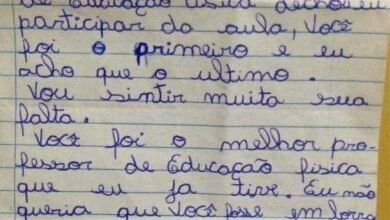 de Educação
participar da aula, Você
foi o primeiro e eu
acho que o ultimo.
Vou sintir muita sua
falta.
Você foi o melhor pro-
fessor de Educação fisica
que eu ja tive. Eu não
queria que Você fose embora